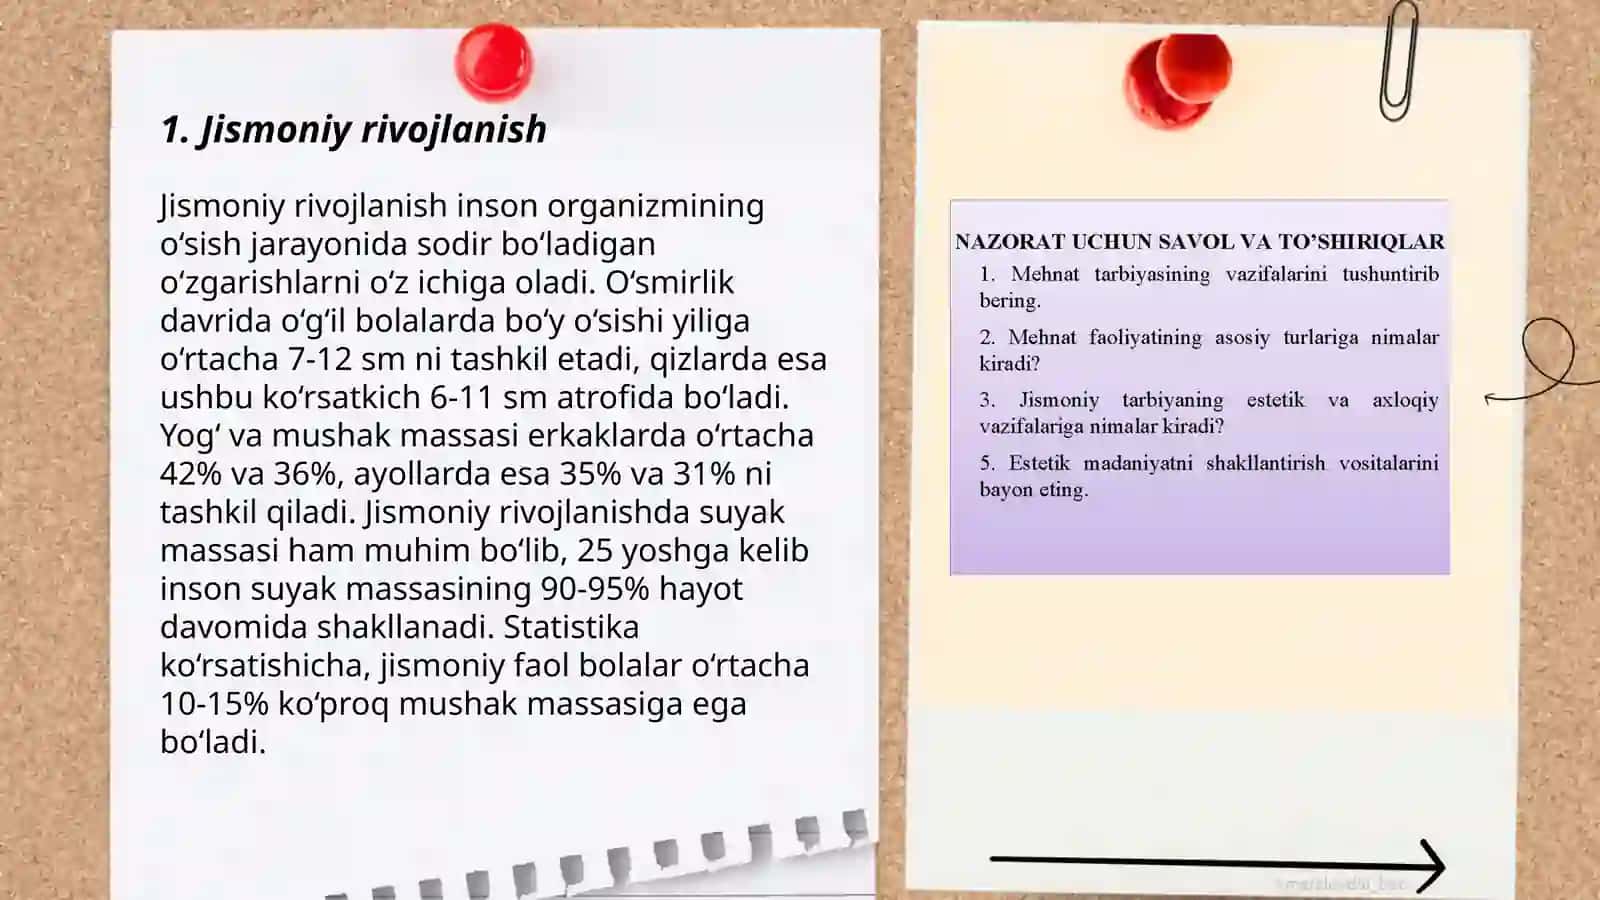 1. Jismoniy rivojlanish
Jismoniy rivojlanish inson organizmining
o‘sish jarayonida sodir bo‘ladigan
o‘zgarishlarni o‘z ichiga oladi. O‘smirlik
davrida o‘g‘il bolalarda bo‘y o‘sishi yiliga
o‘rtacha 7-12 sm ni tashkil etadi, qizlarda esa
ushbu ko‘rsatkich 6-11 sm atrofida bo‘ladi.
Yog‘ va mushak massasi erkaklarda o‘rtacha
42% va 36%, ayollarda esa 35% va 31% ni
tashkil qiladi. Jismoniy rivojlanishda suyak
massasi ham muhim bo‘lib, 25 yoshga kelib
inson suyak massasining 90-95% hayot
davomida shakllanadi. Statistika
ko‘rsatishicha, jismoniy faol bolalar o‘rtacha
10-15% ko‘proq mushak massasiga ega
bo‘ladi.
NAZORAT UCHUN SAVOL VA TO’SHIRIQLAR
1. Mehnat tarbiyasining vazifalarini tushuntirib
bering.
2. Mehnat faoliyatining asosiy turlariga nimalar
kiradi?
3. Jismoniy tarbiyaning estetik va axloqiy
vazifalariga nimalar kiradi?
5. Estetik madaniyatni shakllantirish vositalarini
bayon eting.